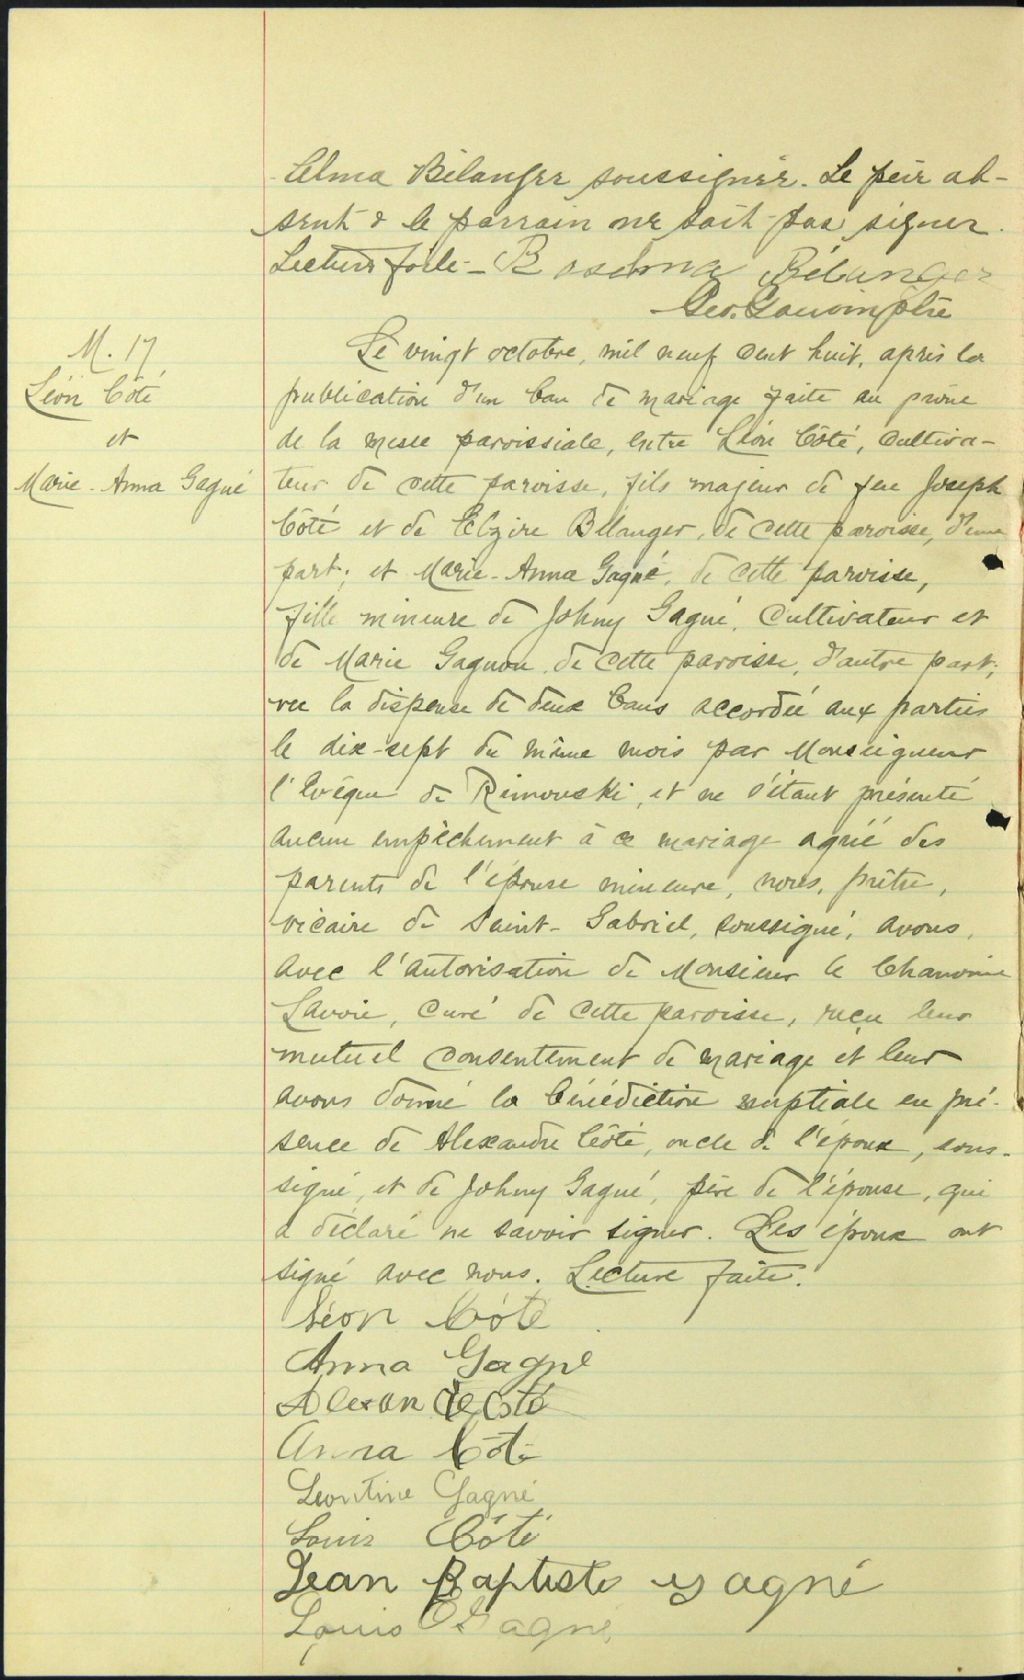 Alma Bélanger soussignée. Le père ab-
sent & le parrain ne sait pas signer.
Lecture faite - Bélanger
Geo. Gauvin ptre
M. 17
Léon Côté
et
Marie-Anna Gagné
Le vingt octobre, mil neuf cent huit, après la
publication d'un ban de mariage faite au prône
de la messe paroissiale, entre Léon Côté, cultiva-
teur de cette paroisse, fils majeur de feu Joseph
Côté et de Elzire Bélanger, de cette paroisse, d'une
part; et Marie-Anna Gagné, de cette paroisse,
fille mineure de Johny Gagné, cultivateur et
de Marie Gagnon, de cette paroisse, d'autre part;
vu la dispense de deux bans accordée aux parties
le dix-sept du même mois par Monseigneur
l'Evêque de Rimouski, et ne s'étant présenté
aucun empêchement à ce mariage agréé des
parents de l'épouse mineure, nous, prêtre,
vicaire de Saint-Gabriel, soussigné, avons,
avec l'autorisation de Monsieur le Chanoine
Lavoie, curé de cette paroisse, reçu leur
mutuel consentement de mariage et leur
avons donné la bénédiction nuptiale en pré-
sence de Alexandre Côté, oncle de l'époux, sous-
signé, et de Johny Gagné, père de l'épouse, qui
a déclaré ne savoir signer. Les époux ont
signé avec nous. Lecture faite.
Léon Côté
Anna Gagné
Alexandre Côté
Anna Côté
Léontine Gagné
Louis Côté
Jean Baptiste Gagné
Louis Gagné